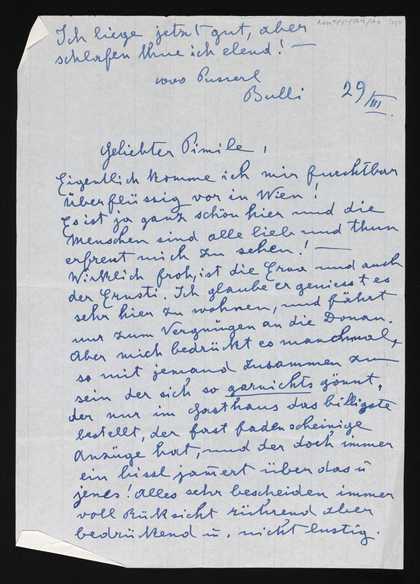 Ich liege jetzt gut, aber
schlafen thue ich elend! —
1000 Pusserl
Bulli
29/III.
Geliebter Pimile,
Eigentlich komme ich mir furchtbar
überflüssig vor in Wien!
Es ist ja ganz schön hier und die
Menschen sind alle lieb und thun
erfreut mich zu sehen! —
Wirklich froh, ist die Erna und auch
der Ernsti. Ich glaube er geniesst es
sehr hier zu wohnen, und fährt
nur zum Vergnügen an die Donau.
Aber mich bedrückt es manchmal,
so mit jemand zusammen zu
sein der sich so garnichts gönnt,
der nur im Gasthaus das billigste
bestellt, der fast fadenscheinige
Anzüge hat, und der doch immer
ein bissl jam̄ert über das u
jenes! Alles sehr bescheiden immer
voll Rüksicht rührend aber
bedrückend u. nicht lustig.